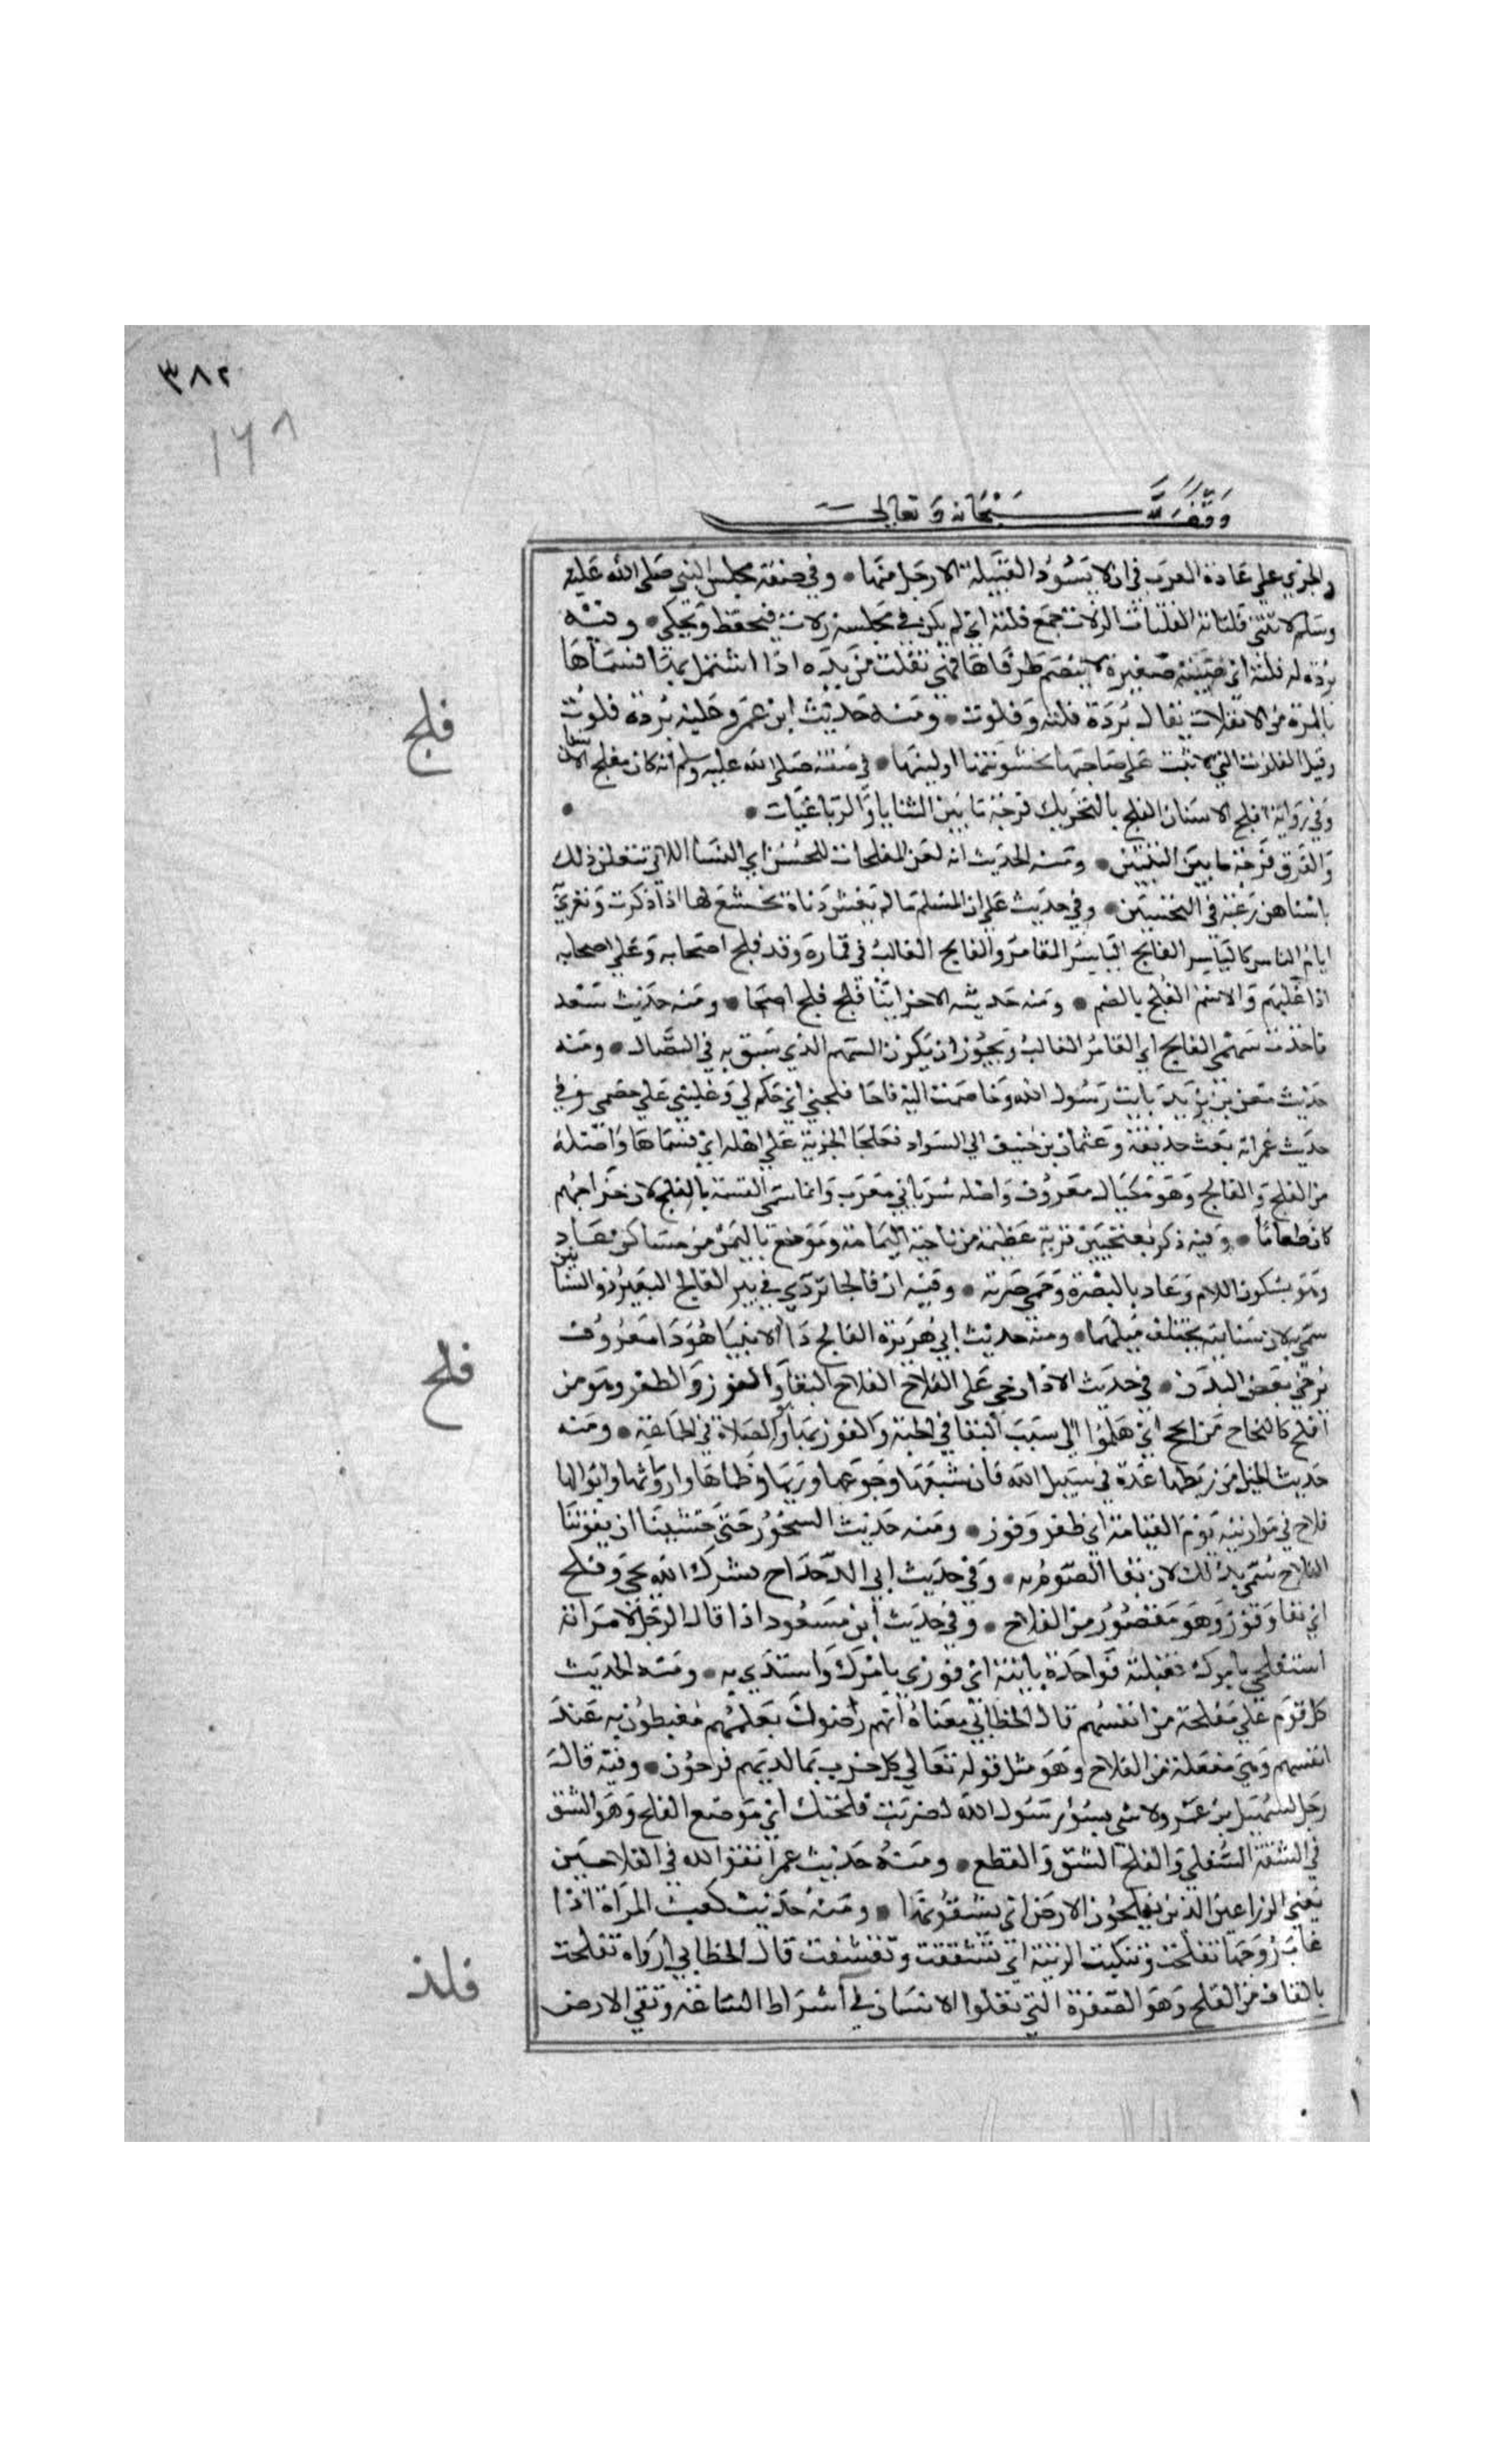 ٣٨٢
١٦٨
وقف لله سبحانه وتعالى
والجري على عادة العرب في ان لا يسود القبيلة الا رجل منها • وفي صفة مجلس النبي صلى الله عليه
وسلم لا تنثى فلتاته الفلتات الزلات جمع فلتة اي لم يكن في مجلسه زلات فيحفظ ويحكى • وفيه
بردة له فلتة اي ضيقة صغيرة لا ينضم طرفاها فهي تفلت من يده اذا اشتمل بها فسماها
بالمرة من الانفلات يقال بردة فلتة وفلوت • ومنه حديث ابن عمر وعليه بردة فلوت
وقيل الفلوت التي لا تثبت على صاحبها لخشونتها او لينها • في صفته صلى الله عليه وسلم انه كان مفلج الاسنان
فلج
وفي رواية افلج الاسنان الفلج بالتحريك فرجة ما بين الثنايا والرباعيات •
والفرق فرجة ما بين الثنيتين • ومنه الحديث انه لعن المفلجات للحسن اي النسا اللاتي تفعلن ذلك
باسنانهن رغبة في التحسين • وفي حديث علي ان المسلم ما لم يغش دناة تخشع لها اذا ذكرت وتغري
ايام الناس كالياسر الفالج الياسر المقامر والفالج الغالب في قماره وقد فلج اصحابه وعلى اصحابه
اذا غلبهم والاسم الفلج بالضم • ومنه حديثه الاخر اينا فلج فلج اصحا • ومنه حديث سعد
فاخذت سهمي الفالج اي القامر الغالب ويجوز ان يكون السهم الذي سبق به في النضال • ومنه
حديث معن بن يزيد بايت رسول الله وخاصمت اليه فاحا فلجني اي حكم لي وغلبني على خصمي • وفي
حديث عمر انه بعث حذيفة وعثمان بن حنيف الى السواد ففلجا الجزية على اهله اي قسماها واصله
من الفلج والفالج وهو مكيال معروف واصله سرياني معرب وانما سمى القسمة بالفلج لان خراجهم
كان طعاما • وفيه ذكر بفتحتين قرية عظيمة من ناحية اليمامة وموضع باليمن من مساكن عاد
وهو بسكون اللام وعاد بالبصرة وحمي ضرية • وفيه ان فالجا تردى في بير الفالج البعير ذو السنامين
سمي به لان سناميه يختلف ميلهما • ومنه حديث ابي هريرة الفالج دا الانبيا هو دا معروف
يرخي بعض البدن • في حديث الاذان حي على الفلاح الفلاح البقا والفوز والظفر وهو من
فلح
افلح كالنجاح من انجح اي هلموا الى سبب البقا في الجنة والفوز بها والصلاة في الجماعة • ومنه
حديث الخيل من ربطها عدة في سبيل الله فان شبعها وجوعها وريها وظماها وارواثها وابوالها
فلاح في موازينه يوم القيامة اي ظفر وفوز • ومنه حديث السحور حتى خشينا ان يفوتنا
الفلاح سمي بذلك لان بقا الصوم به • وفي حديث ابي الدحداح بشرك الله بخير وفلح
اي بقا وفوز وهو مقصور من الفلاح • وفي حديث ابن مسعود اذا قال الرجل لامراته
استفلحي بامرك فقبلته فواحدة باينة اي فوزي بامرك واستبدي به • ومنه الحديث
كل قوم على مفلحة من انفسهم قال الخطابي معناه انهم راضون بعلمهم مغبطون به عند
انفسهم وهي مفعلة من الفلاح وهو مثل قوله تعالى كل حزب بما لديهم فرحون • وفيه قال
رجل لسهيل بن عمرو لولا شي يسوء رسول الله لضربت فلحتك اي موضع الفلح وهو الشق
في الشفة السفلى والفلح الشق والقطع • ومنه حديث عمر اتقوا الله في الفلاحين
يعني الزراعين الذين يفلحون الارض اي يشقونها • ومنه حديث كعب المراة اذا
غاب زوجها تفلحت وتنكبت الزينة اي تشققت وتقشفت قال الخطابي اراه تقلحت
بالقاف من القلح وهو الصفرة التي تعلوا الاسنان في اشراط الساعة وتقي الارض
فلذ